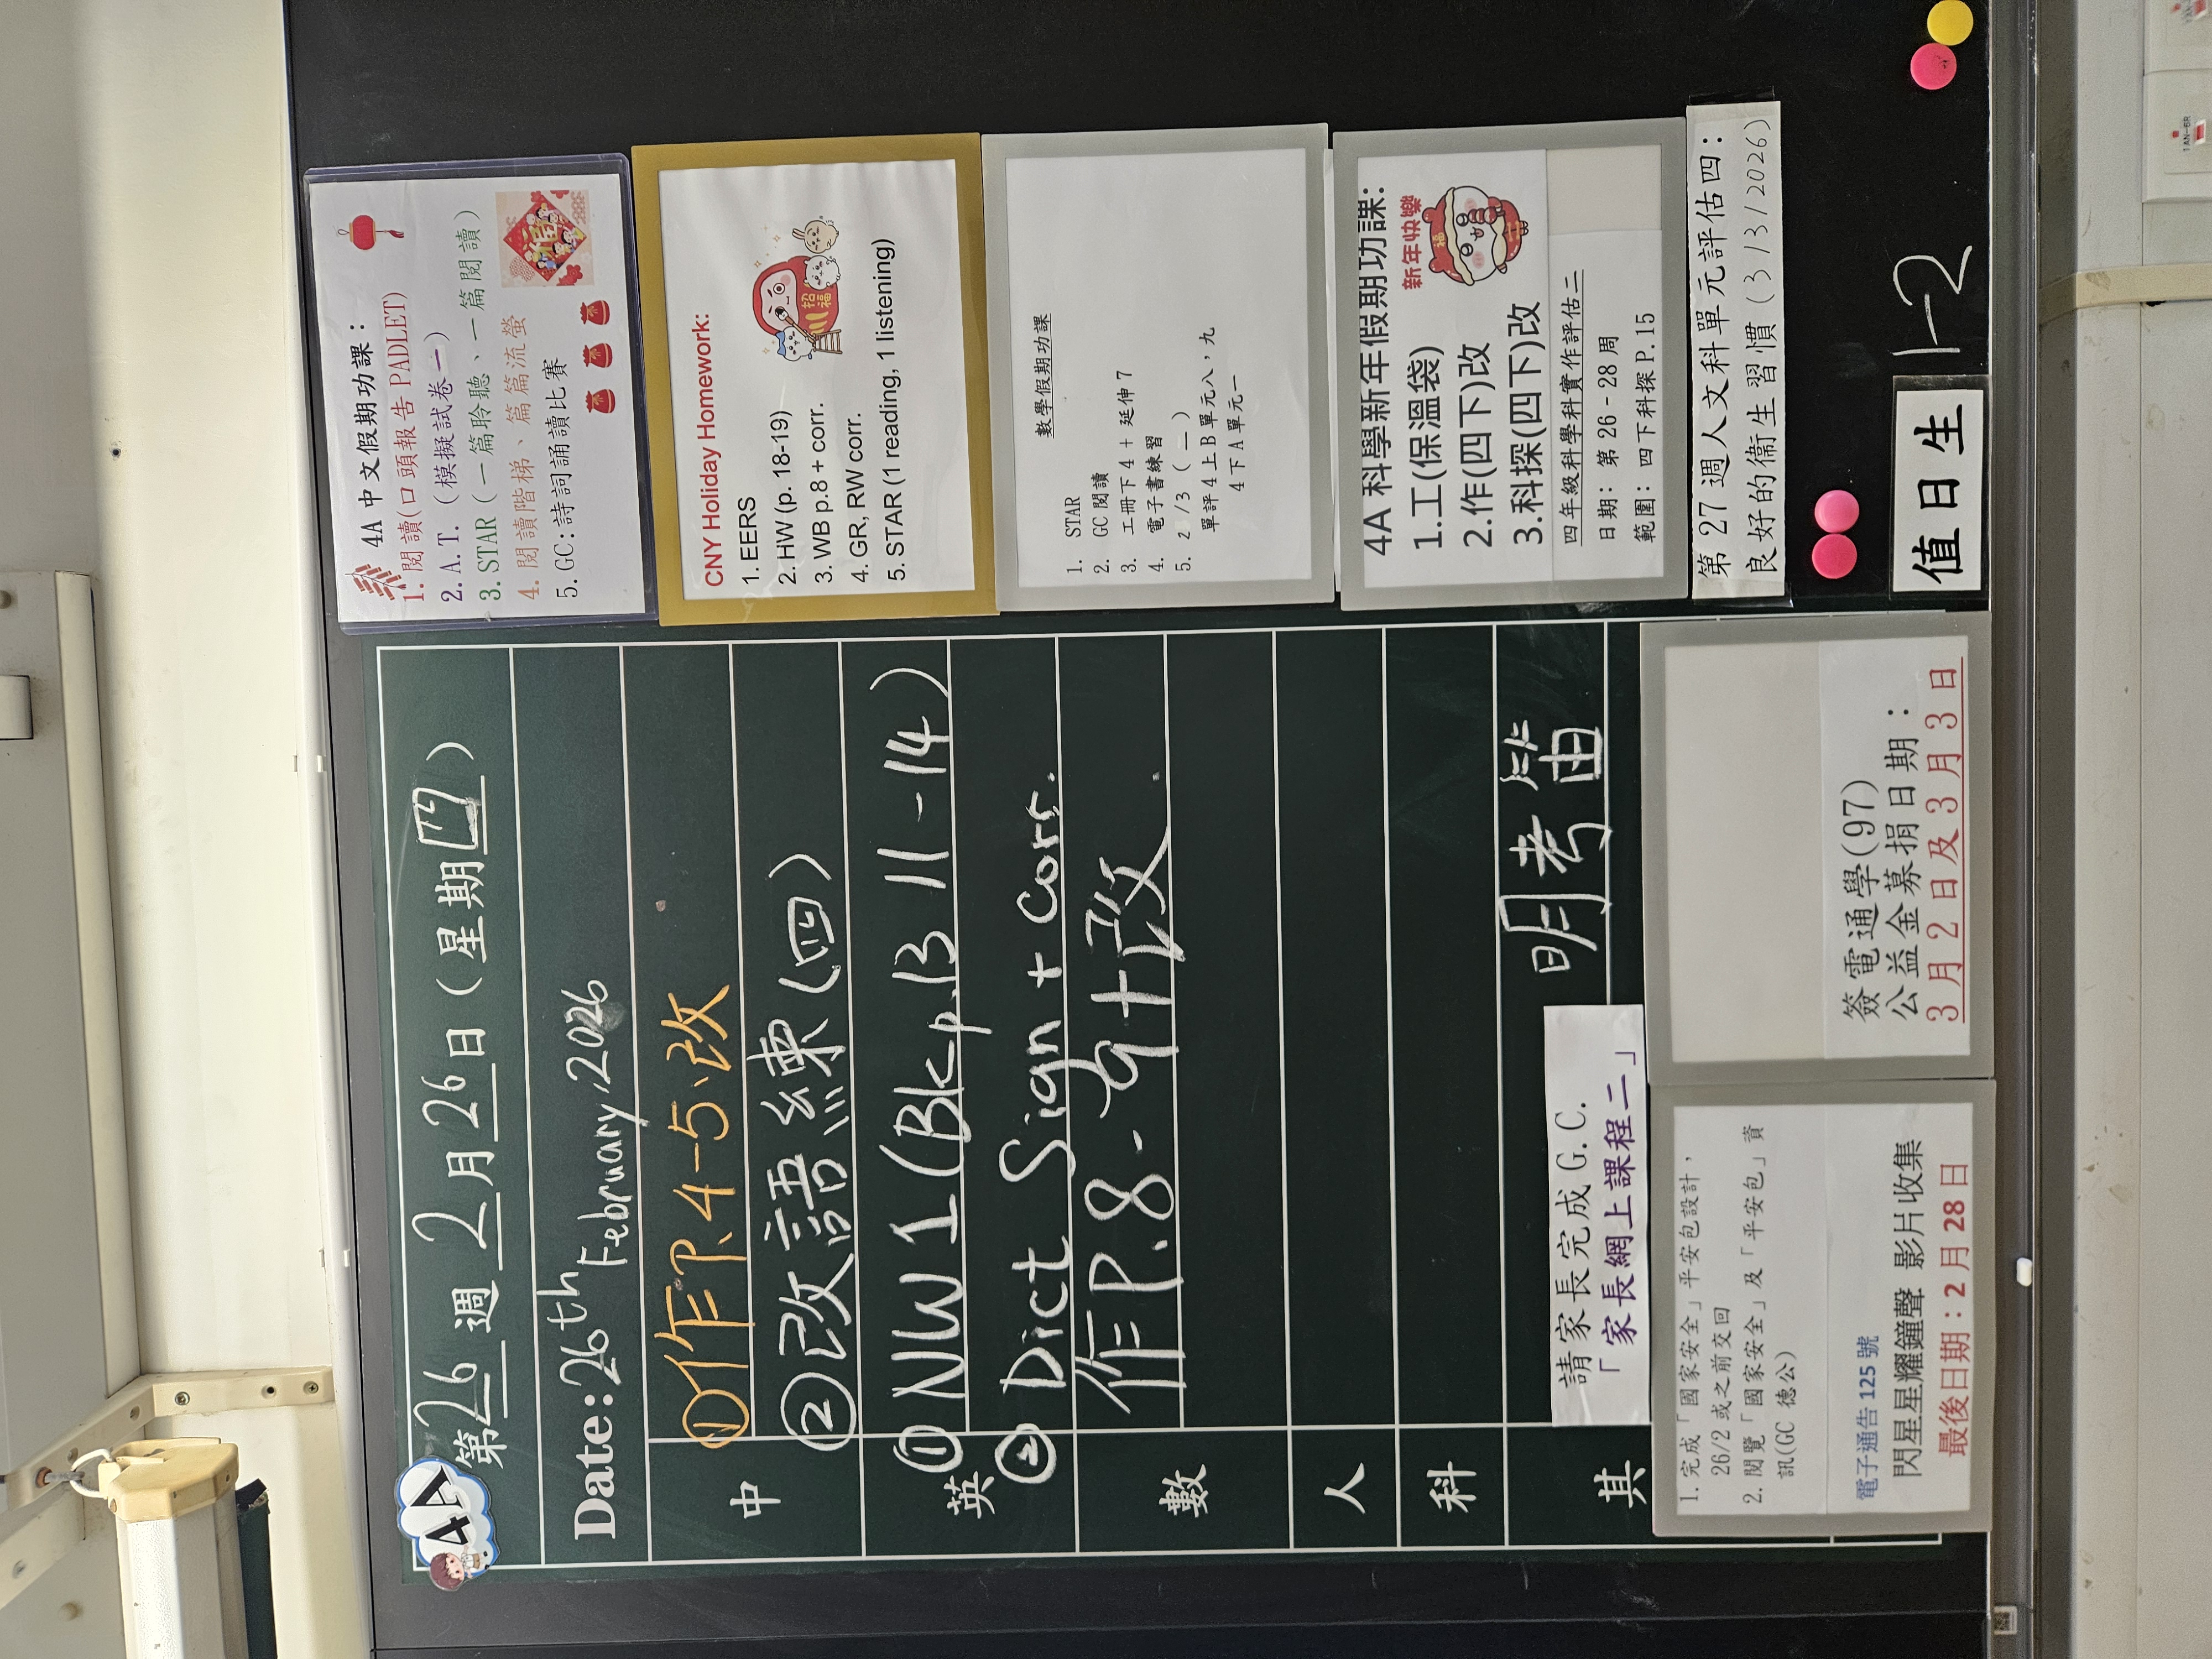 4A
第26週 2月26日(星期四)
Date: 26th February, 2026
中
①作P.4-5、改
②改語練(四)
英
① NW 1 (Bk p.13 11-14)
② Dict Sign + Corr.
數
作P.8-9+改
人
科
其
請家長完成G.C.
「家長網上課程二」
明考笛
1. 完成「國家安全」平安包設計,
26/2 或之前交回
2. 閱覽「國家安全」及「平安包」資
訊(GC 德公)
電子通告 125 號
閃星星耀鐘聲 影片收集
最後日期:2 月 28 日
簽電通學(97)
公益金募捐日期:
3月2日及3月3日
4A 中文假期功課:
1. 閱讀(口頭報告 PADLET)
2. A.T. (模擬試卷一)
3. STAR (一篇聆聽、一篇閱讀)
4. 閱讀階梯、篇篇流螢
5. GC:詩詞誦讀比賽
CNY Holiday Homework:
1. EERS
2. HW (p. 18-19)
3. WB p.8 + corr.
4. GR, RW corr.
5. STAR (1 reading, 1 listening)
招福
數學假期功課
1. STAR
2. GC 閱讀
3. 工冊下 4 + 延伸 7
4. 電子書練習
5. 2/3 (一)
單評 4 上 B 單元八,九
4 下 A 單元一
4A 科學新年假期功課:
1.工(保溫袋)
2.作(四下)改
3.科探(四下)改
新年快樂
福
四年級科學科實作評估二
日期: 第 26 - 28 周
範圍: 四下科探 P.15
第 27 週人文科單元評估四:
良好的衞生習慣 (3/3/2026)
值日生
1-2